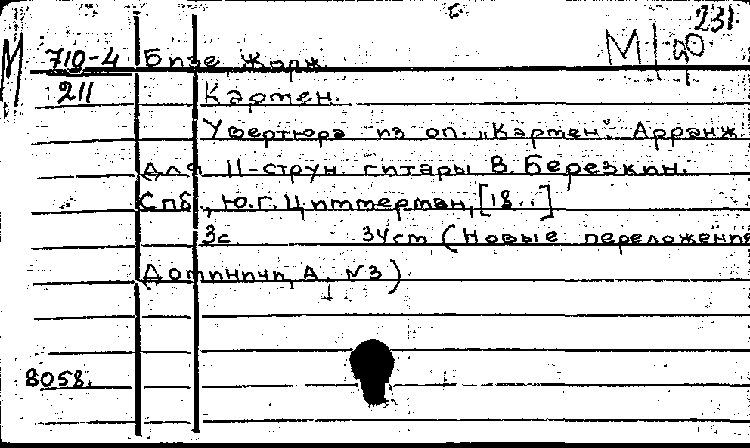 231.
М/ф
710-4 Бизе, Жорж.
211 Кармен.
Увертюра из оп. "Кармен". Арранж.
для 11-струн. гитары В. Березкин.
Спб., Ю.Г. Циммерман, [18..]
3с 34ст (Новые переложения
Доминичи, А, №3)
8058.